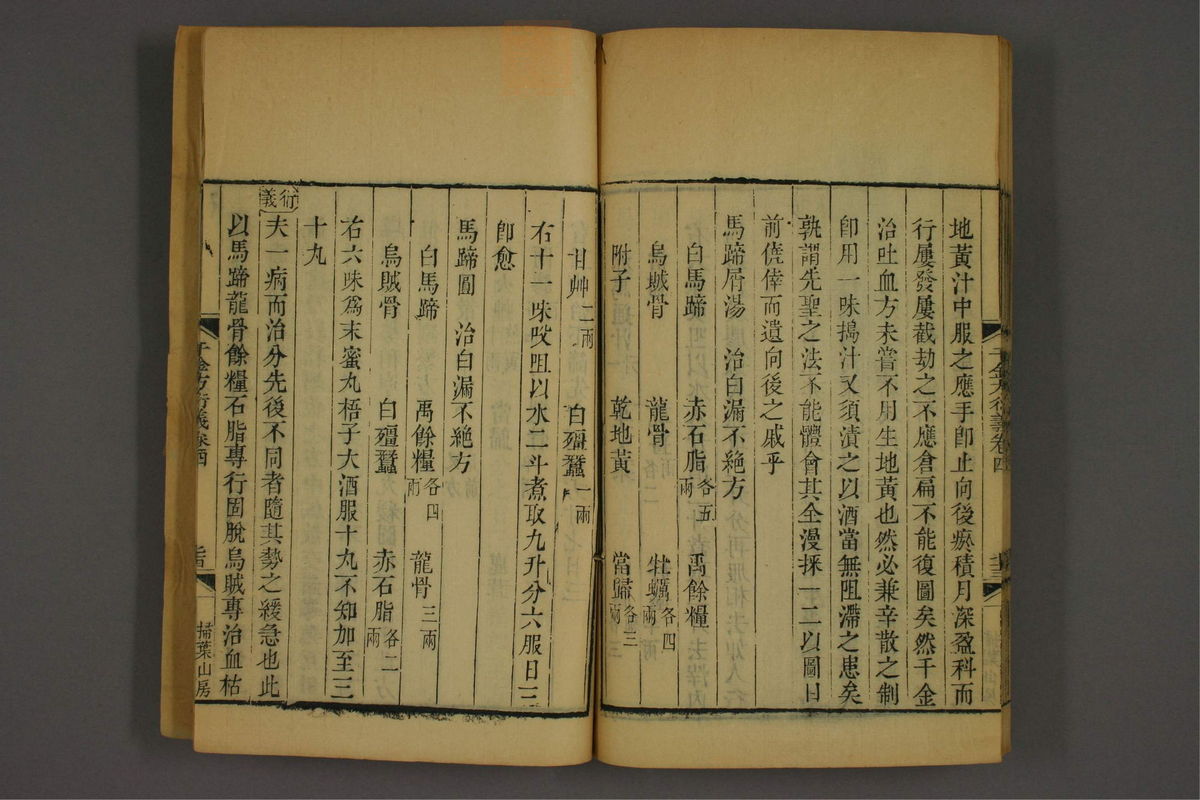 地黃汁中服之應手卽止向後瘀積月深盈科而
行屢發屢截劫之不應倉扁不能復圖矣然千金
治吐血方未嘗不用生地黃也然必兼辛散之制
卽用一味搗汁又須漬之以酒當無阻滯之患矣
孰謂先聖之法不能體會其全漫採一二以圖目
前僥倖而遺向後之戚乎
馬蹄屑湯 治白漏不絶方
白馬蹄 赤石脂各五兩 禹餘糧
烏賊骨 龍骨各二兩 牡蠣各四兩
附子 乾地黃 當歸各三兩
甘艸二兩 白殭蠶一兩
右十一味㕮咀以水二斗煮取九升分六服日三
卽愈
馬蹄圓 治白漏不絶方
白馬蹄 禹餘糧各四兩 龍骨三兩
烏賊骨 白殭蠶 赤石脂各二兩
右六味爲末蜜丸梧子大酒服十丸不知加至三
十丸
衍義
夫一病而治分先後不同者隨其勢之緩急也此
以馬蹄龍骨餘糧石脂專行固脫烏賊專治血枯
千金方衍義卷四
掃葉山房